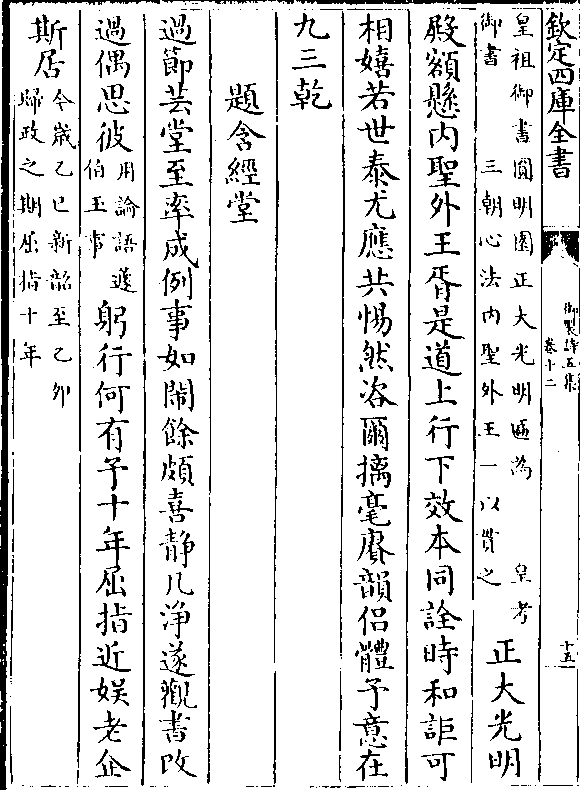 欽定四庫全書
御製詩五集
卷十二
十五
皇祖御書圓明園正大光明匾為 皇考
御書 三朝心法内聖外王一以貫之
正大光明
殿額懸内聖外王胥是道上行下效本同詮時和詎可
相嬉若世泰尤應共惕然咨爾摛毫賡韻侣體予意在
九三乾
題含經堂
過節芸堂至率成例事如閙餘頗喜静几浄遂觀書改
過偶思彼
用論語蘧
伯玉事
躬行何有予十年屈指近娱老企
斯居
今嵗乙巳新韶至乙夘
歸政之期屈指十年